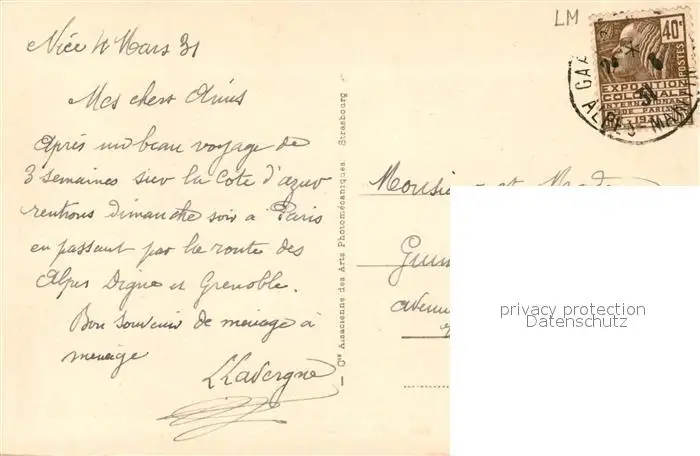 Nice 4 Mars 31
Mes chers Amis
Après un beau voyage de
3 semaines sur la Cote d'azur
rentrons dimanche soir à Paris
en passant par la route des
Alpes Digne et Grenoble.
Bon souvenir de ménage à
ménage
LLavergne
Cie Alsacienne des Arts Photomécaniques, Strasbourg
LM
40c
POSTES
EXPOSITION
COLONIALE
INTERNATIONALE
DE PARIS
ALPES MARITI
31
Monsie et Mada
avenu
privacy protection
Datenschutz